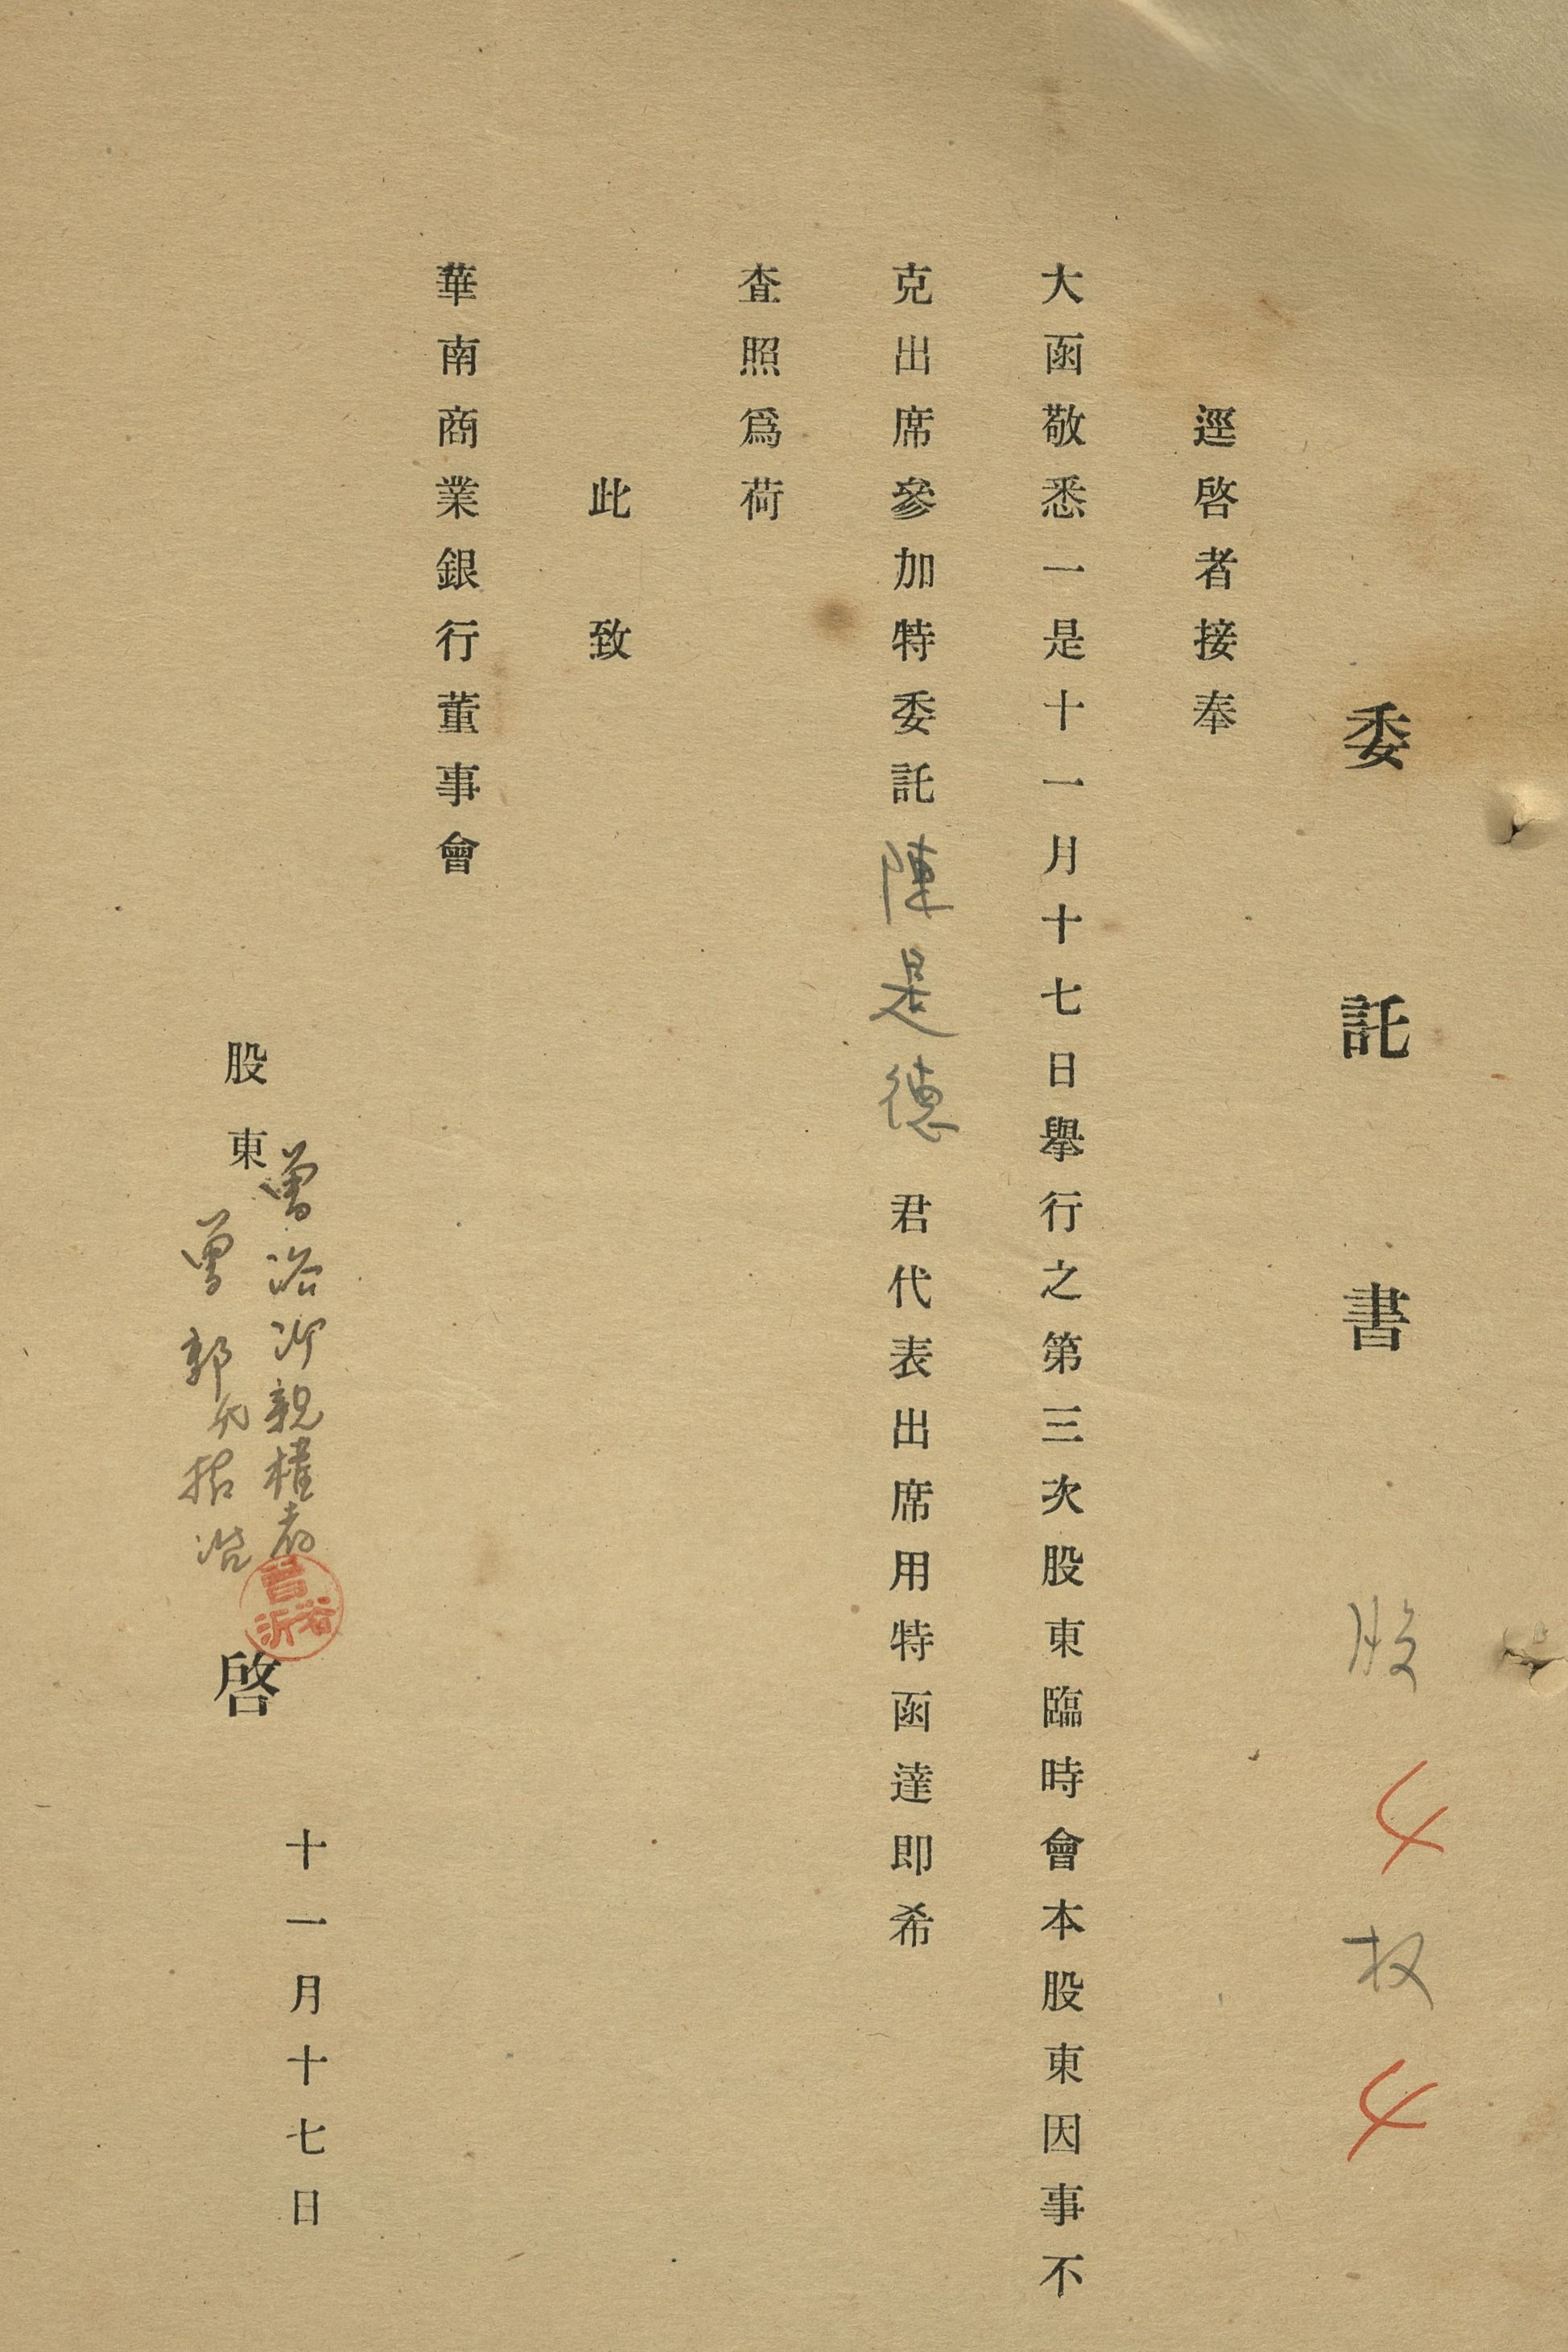 委託書 股4权4
逕啓者接奉
大函敬悉一是十一月十七日舉行之第三次股東臨時會本股東因事不
克出席參加特委託陳是德君代表出席用特函達即希
查照爲荷
此致
華南商業銀行董事會
十一月十七日
曾浴沂親權者
股東曾郭 啓